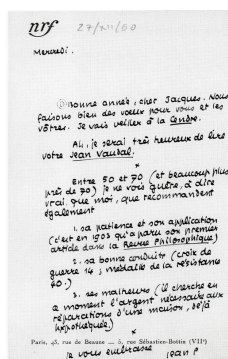 nrf
27/XII/60
Mercredi.
Bonne année, cher Jacques. Nous
faisons bien des voeux pour vous et les
vôtres. Je vais veiller à la Cendre.
Ah, je serai très heureux de lire
votre Jean Vaudal.
*
Entre 50 et 70 (et beaucoup plus
près de 70) je ne vois guère, à dire
vrai, que moi, que recommandent
également
1. sa patience et son application
(c'est en 1903 qu'a paru son premier
article dans la Revue Philosophique)
2. sa bonne conduite (croix de
guerre 14 ; médaille de la résistance
40.)
3. ses malheurs (il cherche en
ce moment l'argent nécessaire aux
réparations d'une maison, déjà
hypothéquée.)
*
Paris, 43, rue de Beaune — 5, rue Sébastien-Bottin (VIIe)
je vous embrasse
Jean P